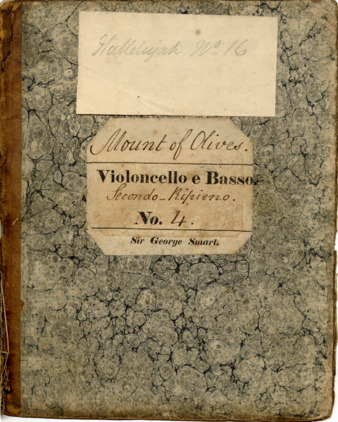 Hallelujah No. 16
Mount of Olives.
Violoncello e Basso.
Secondo-Ripieno.
No. 4.
Sir George Smart.